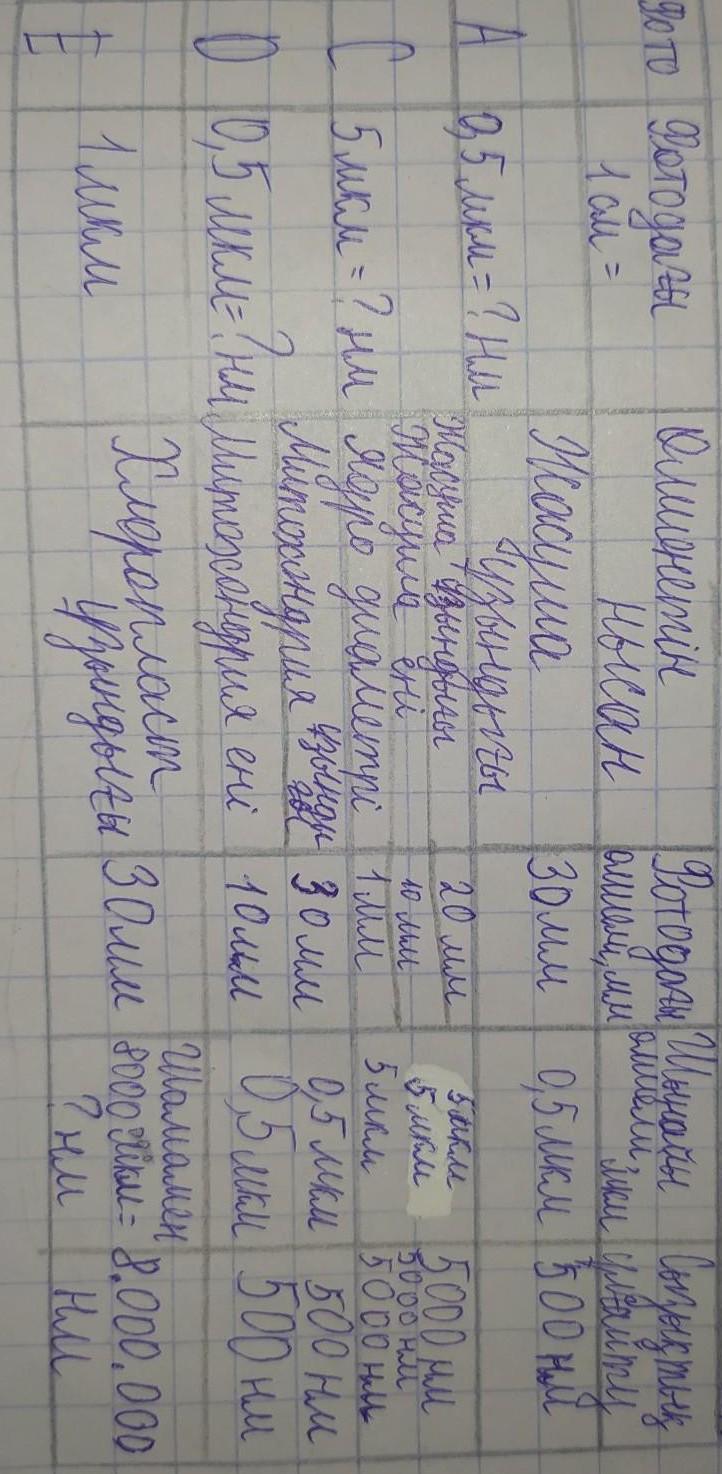 Фото
Фотодағы
1 см =
Өлшенетін
нысан
Фотодағы
өлшемі, мм
Шынайы
өлшемі, мкм
Сызықтық
ұлғайту
A
0,5 мкм = ? нм
Жасуша
ұзындығы
30 мм
0,5 мкм
500 нм
C
5 мкм = ? нм
Жасуша ұзындығы
Жасуша ені
Ядро диаметрі
20 мм
10 мм
1 мм
5 мкм
5 мкм
5 мкм
5000 нм
5000 нм
5000 нм
D
0,5 мкм = ? нм
Митохондрия ұзынды
Митохондрия ені
30 мм
10 мм
0,5 мкм
0,5 мкм
500 нм
500 нм
E
1 мкм
Хлоропласт
ұзындығы
30 мм
Шамамен
8000 мкм =
? нм
8.000.000
нм